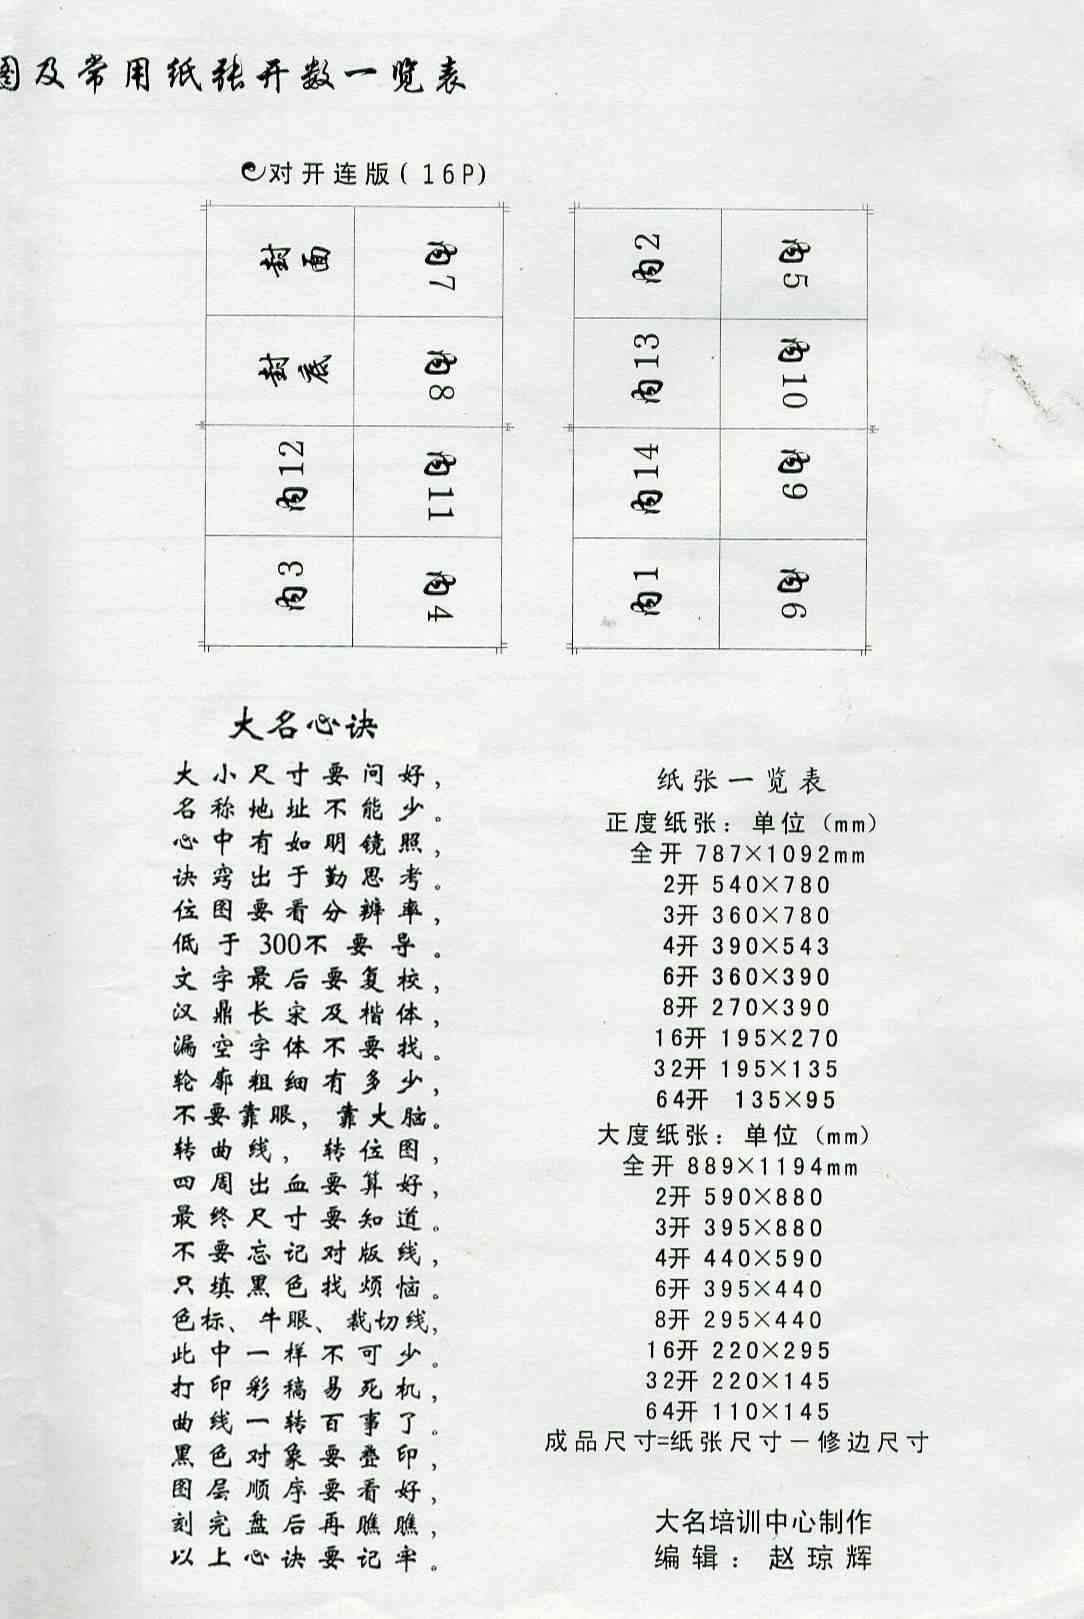 图及常用纸张开数一览表
对开连版(16P)
封面
内7
封底
内8
内12
内11
内3
内4
内2
内5
内13
内10
内14
内9
内1
内6
大名心诀
大小尺寸要问好，
名称地址不能少。
心中有如明镜照，
诀窍出于勤思考。
位图要看分辨率，
低于300不要导。
文字最后要复校，
汉鼎长宋及楷体，
漏空字体不要找。
轮廓粗细有多少，
不要靠眼，靠大脑。
转曲线，转位图，
四周出血要算好，
最终尺寸要知道。
不要忘记对版线，
只填黑色找烦恼。
色标、牛眼、裁切线，
此中一样不可少。
打印彩稿易死机，
曲线一转百事了。
黑色对象要叠印，
图层顺序要看好，
刻完盘后再瞧瞧，
以上心诀要记牢。
纸张一览表
正度纸张：单位（mm）
全开 787×1092mm
2开 540×780
3开 360×780
4开 390×543
6开 360×390
8开 270×390
16开 195×270
32开 195×135
64开 135×95
大度纸张：单位（mm）
全开 889×1194mm
2开 590×880
3开 395×880
4开 440×590
6开 395×440
8开 295×440
16开 220×295
32开 220×145
64开 110×145
成品尺寸=纸张尺寸－修边尺寸
大名培训中心制作
编辑：赵琼辉